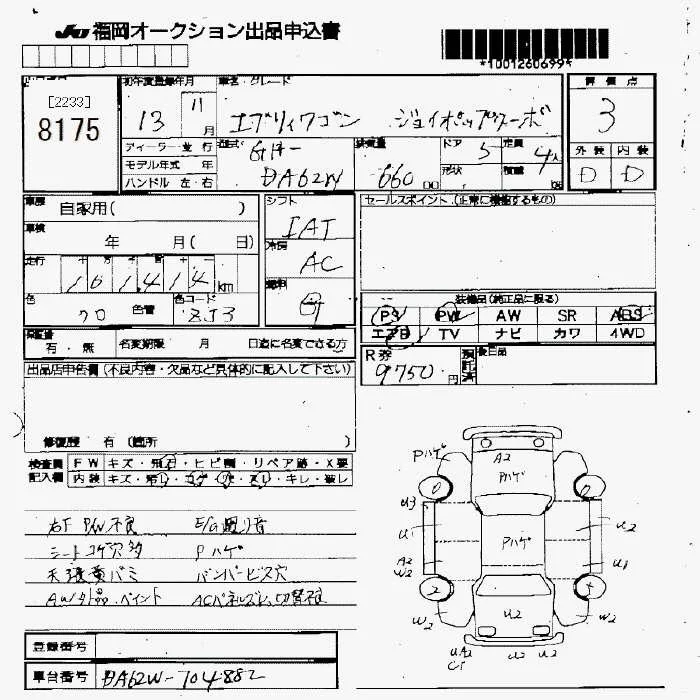 JU 福岡オークション出品申込書
*1001260699*
[2233]
8175
初年度登録年月
13 11月
車名・グレード
エブリィワゴン ジョイポップターボ
評価点
3
ディーラー・並行
モデル年式 年
ハンドル 左・右
型式 GH-
DA62W
排気量
660 cc
ドア 5
形状
定員 4人
積載 kg
外装 内装
D D
車歴 自家用( )
車検 年 月( 日)
走行 十 万 千 百 十 一
101414 km
色 クロ 色替
色コード ZJ3
シフト
IAT
冷房
AC
燃料
セールスポイント.(正常に機能するもの)
装備品(純正品に限る)
PS PW AW SR ABS
エアB TV ナビ カワ 4WD
保証書 有・無
名変期限 月 日迄に名変できる方
R券
9750円
預託済
後日品
出品店申告欄(不良内容・欠品など具体的に記入して下さい)
修復歴 有(箇所 )
検査員記入欄
FW キズ・飛石・ヒビ割・リペア跡・X要
内装 キズ・汚レ・コゲ・穴・スレ・キレ・破レ
右F P/W不良 E/G廻り音
シートコゲ穴多 Pハゲ
天張黄バミ バンパービス穴
AW外品.ペイント
Pハゲ
A2
Pハゲ
U3
U2
U
Pハゲ
A2
W2
U1
W2
U2
W2
UA2
U2
登録番号
車台番号 DA62W-704882